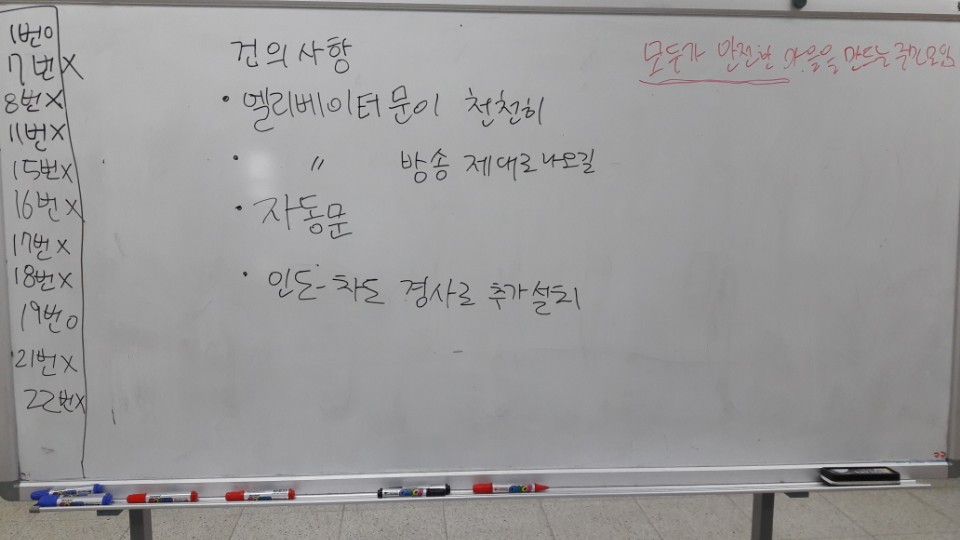 1번O
7번X
8번X
11번X
15번X
16번X
17번X
18번X
19번O
21번X
22번X
건의사항
• 엘리베이터 문이 천천히
• 〃 방송 제대로 나오길
• 자동문
• 인도-차도 경사로 추가설치
모두가 안전한 마을을 만드는 주민모임